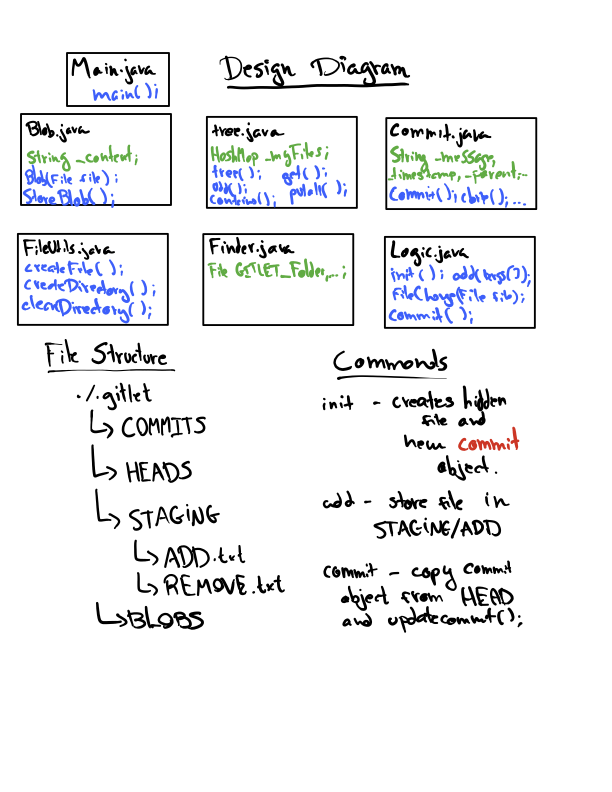 Design Diagram
Main.java
main();
Blob.java
String _content;
Blob(File file);
StoreBlob();
tree.java
HashMap _myFiles;
tree(); get();
add(); putall();
contains();
Commit.java
String _message,
_timestamp, _parent;...
Commit(); ...
FileUtils.java
createFile();
createDirectory();
cleanDirectory();
Finder.java
File GITLET_Folder,...;
Logic.java
init(); add(args[]);
FileChange(File file);
commit();
File Structure
./.gitlet
COMMITS
HEADS
STAGING
ADD.txt
REMOVE.txt
BLOBS
Commands
init - creates hidden
file and
new commit
object.
add - store file in
STAGING/ADD
commit - copy commit
object from HEAD
and updatecommit();